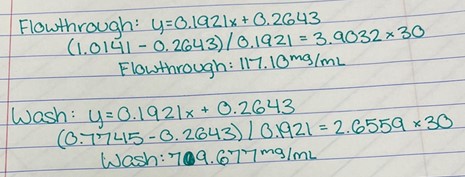 Flowthrough: y=0.1921x+0.2643
(1.0141-0.2643)/0.1921=3.9032×30
Flowthrough: 117.10mg/mL
Wash: y=0.1921x+0.2643
(0.7745-0.2643)/0.1921=2.6559×30
Wash: 709.677mg/mL